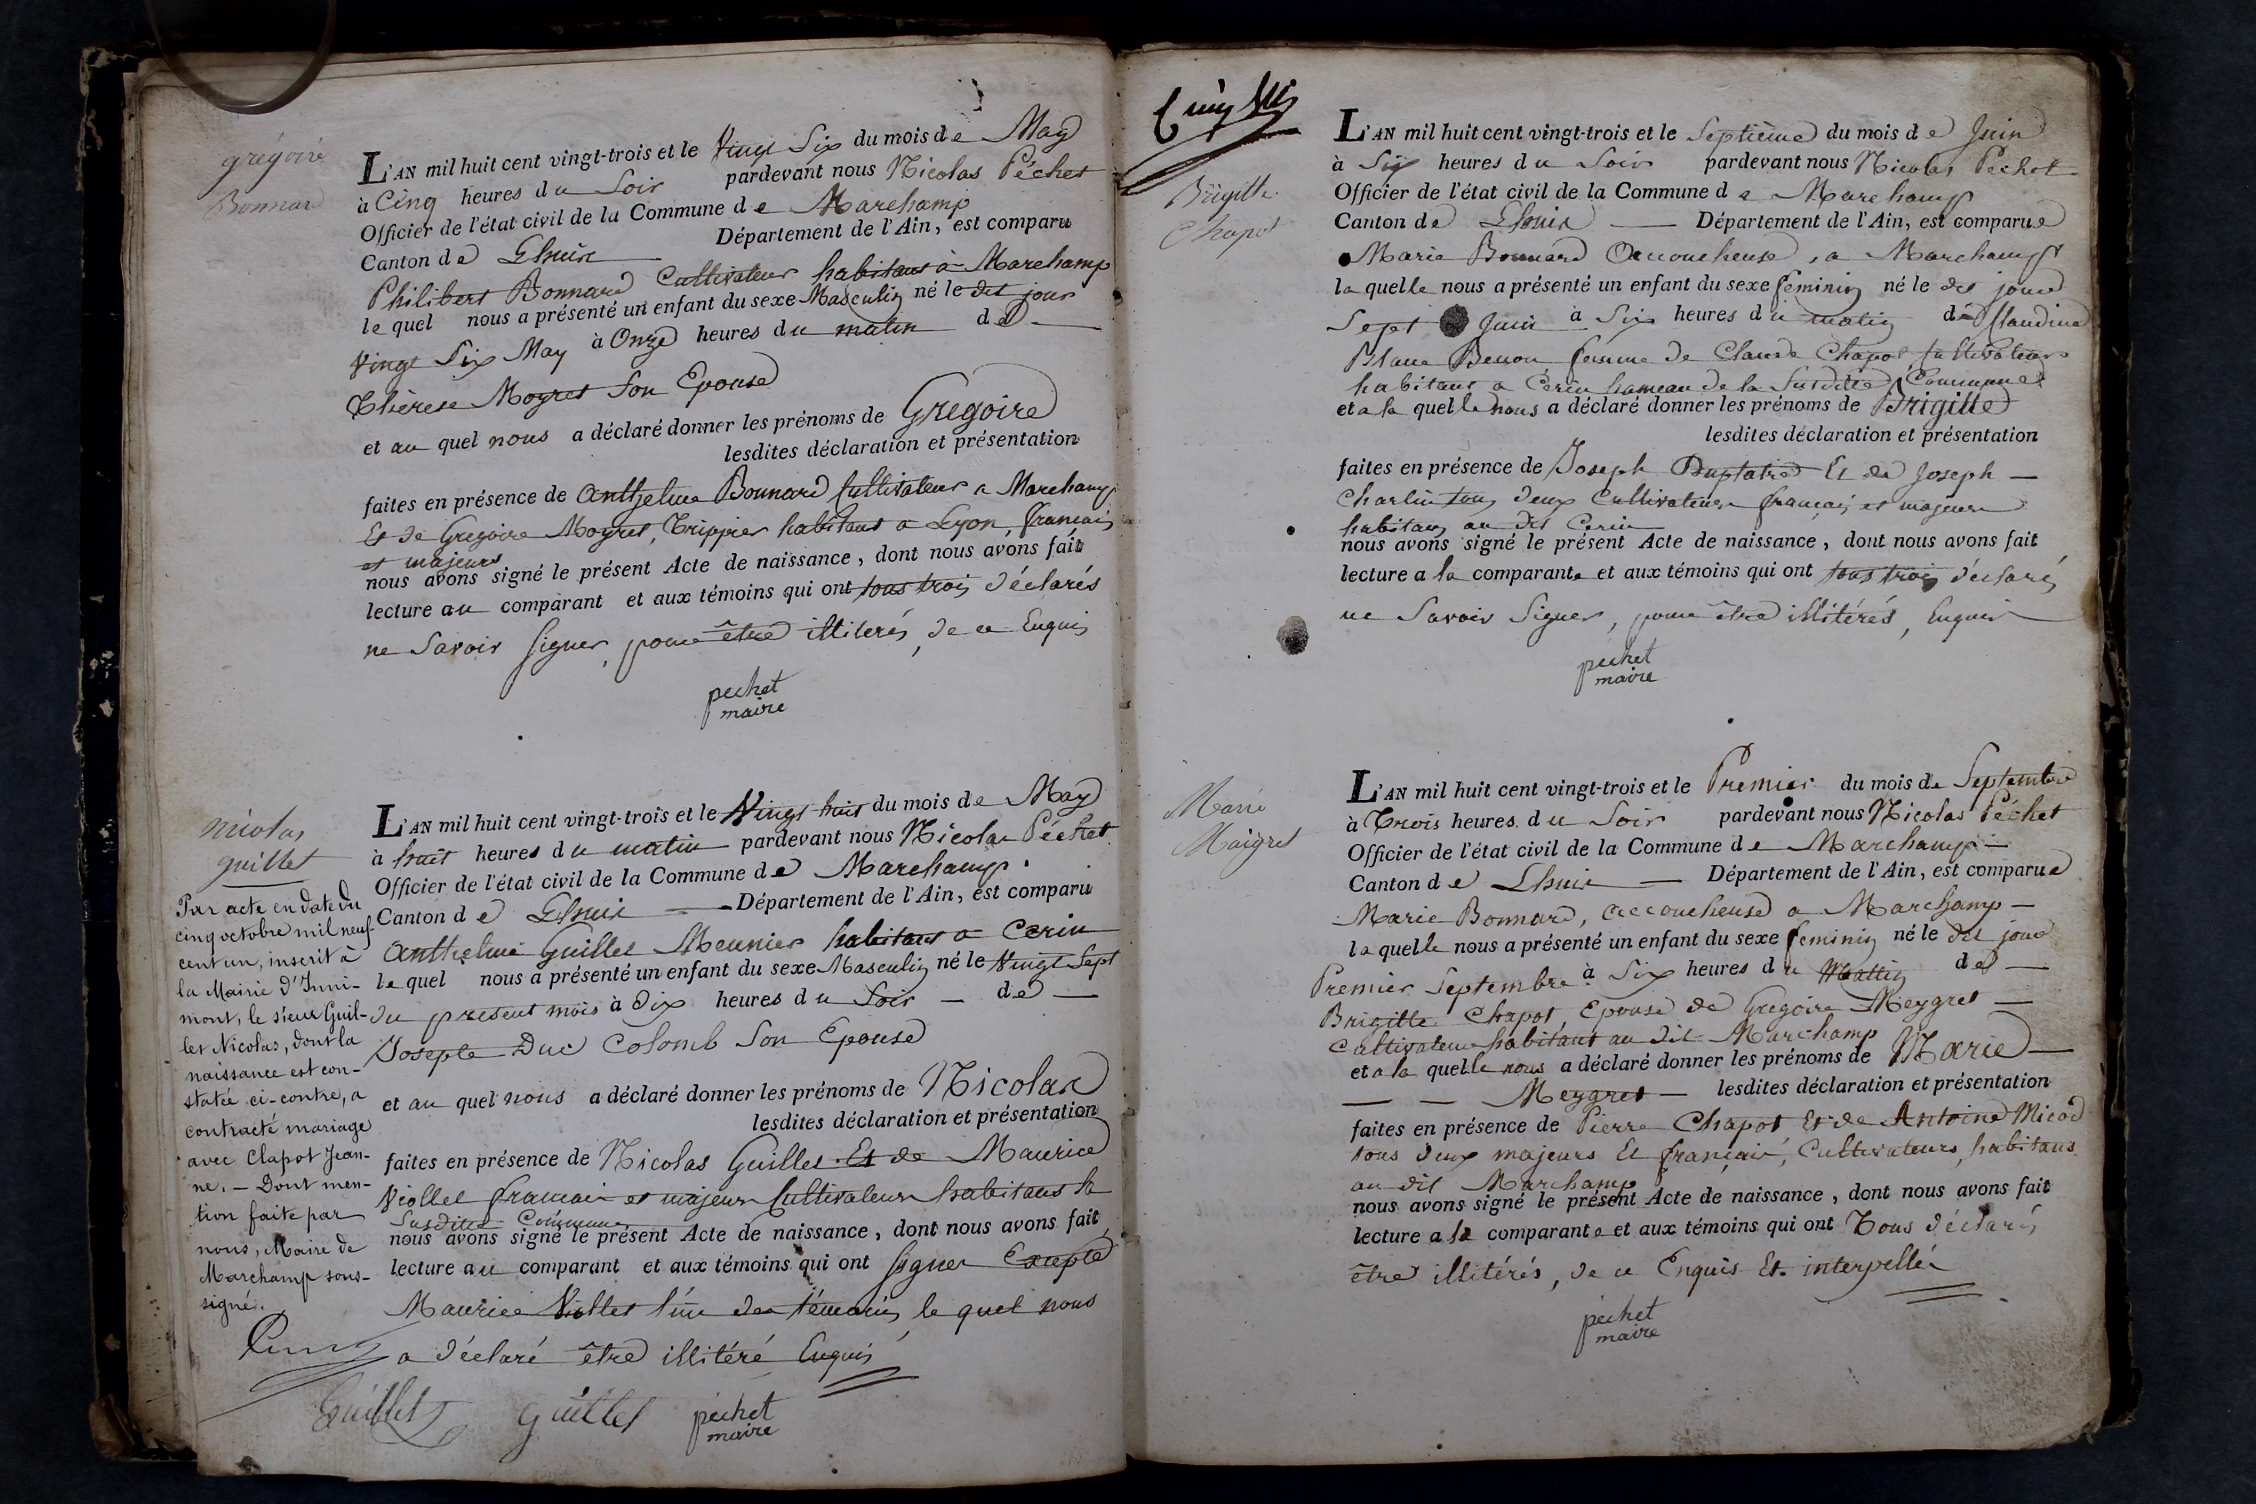 grégoire
Bonnard
L'AN mil huit cent vingt-trois et le Vingt Six du mois de May
à Cinq heures du Soir pardevant nous Nicolas Péchet
Officier de l'état civil de la Commune de Marchamp
Canton de Lhuix Département de l'Ain, est comparu
Philibert Bonnard Cultivateur habitant à Marchamp
le quel nous a présenté un enfant du sexe Masculin né le dit jour
Vingt Six May à Onze heures du matin de
Thérèse Moyret Son Epouse
et au quel nous a déclaré donner les prénoms de Grégoire
lesdites déclaration et présentation
faites en présence de Anthelme Bonnard Cultivateur a Marchamp
Et de Gregoire Moyret, Trippier habitant a Lyon, francais
et majeurs
nous avons signé le présent Acte de naissance, dont nous avons fait
lecture au comparant et aux témoins qui ont tous trois déclarés
ne Savoir Signer, pour être illitérés, de ce Enquis
pechet
maire
nicolas
guillet
Par acte en date du
cinq octobre mil neuf
cent un, inscrit à
la Mairie d'Inni-
mont, le sieur Guil-
let Nicolas, dont la
naissance est con-
statée ci-contre, a
contracté mariage
avec Clapot Jean-
ne. — Dont men-
tion faite par
nous, Maire de
Marchamp sous-
signé.
L'AN mil huit cent vingt-trois et le Vingt huit du mois de May
à huit heures du matin pardevant nous Nicolas Péchet
Officier de l'état civil de la Commune de Marchamp
Canton de Lhuix Département de l'Ain, est comparu
Anthelme Guillet Meunier habitant a Cerin
le quel nous a présenté un enfant du sexe Masculin né le Vingt Sept
du present mois à dix heures du Soir — de —
Josepte Duc Colomb Son Epouse
et au quel nous a déclaré donner les prénoms de Nicolas
lesdites déclaration et présentation
faites en présence de Nicolas Guillet Et de Maurice
Viollet francais et majeurs Cultivateurs habitans la
Susdite Commune
nous avons signé le présent Acte de naissance, dont nous avons fait
lecture au comparant et aux témoins qui ont Signer Excepté
Maurice Viollet l'un des témoins le quel nous
a déclaré être illitéré Enquis
Guillet guillet pechet
maire
Brigitte
Chapot
L'AN mil huit cent vingt-trois et le Septième du mois de Juin
à Six heures du Soir pardevant nous Nicolas Pechet
Officier de l'état civil de la Commune de Marchamp
Canton de Lhuix — Département de l'Ain, est comparue
Marie Bonnard Accoucheuse, a Marchamp
la quelle nous a présenté un enfant du sexe feminin né le dit jour
Sept Juin à Six heures du matin de Claudine
Blanc Benon femme de Claude Chapot Cultivateur
habitant a Cerin hameau de la Susditte Commune
et a la quelle nous a déclaré donner les prénoms de Brigitte
lesdites déclaration et présentation
faites en présence de Joseph Et de Joseph —
Charlin tous deux Cultivateurs français et majeurs
habitans au dit Cerin
nous avons signé le présent Acte de naissance, dont nous avons fait
lecture a la comparante et aux témoins qui ont tous trois déclarés
ne Savoir Signer, pour être illitérés, Enquis
pechet
maire
Marie
Maigret
L'AN mil huit cent vingt-trois et le Premier du mois de Septembre
à Trois heures du Soir pardevant nous Nicolas Péchet
Officier de l'état civil de la Commune de Marchamp —
Canton de Lhuix — Département de l'Ain, est comparue
Marie Bonnard, accoucheuse a Marchamp —
la quelle nous a présenté un enfant du sexe feminin né le dit jour
Premier Septembre à Six heures du Mattin de —
Brigitte Chapot Epouse de Gregoire Meygret —
Cultivateur habitant au dit Marchamp
et a la quelle nous a déclaré donner les prénoms de Marie —
— — Meygret — lesdites déclaration et présentation
faites en présence de Pierre Chapot Et de Antoine Micod
tous deux majeurs Et français, Cultivateurs, habitans
au dit Marchamp
nous avons signé le présent Acte de naissance, dont nous avons fait
lecture a la comparante et aux témoins qui ont Tous déclarés
être illitérés, de ce Enquis Et interpellés
pechet
maire